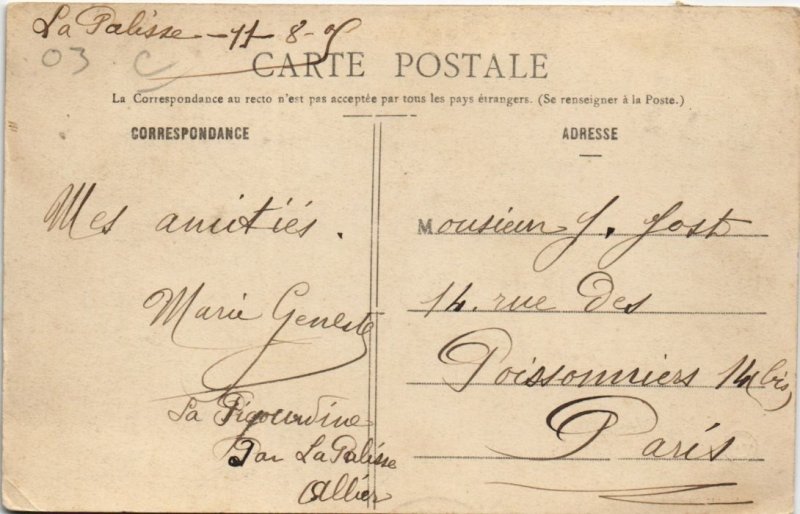 La Palisse - 11 - 8 - 5
03 C
CARTE POSTALE
La Correspondance au recto n'est pas acceptée par tous les pays étrangers. (Se renseigner à la Poste.)
CORRESPONDANCE
Mes amitiés.
Marie Geneste
La Pigourdine
Par La Palisse
Allier
ADRESSE
Monsieur J. Jost
14. rue des
Poissonniers 14 (bis)
Paris